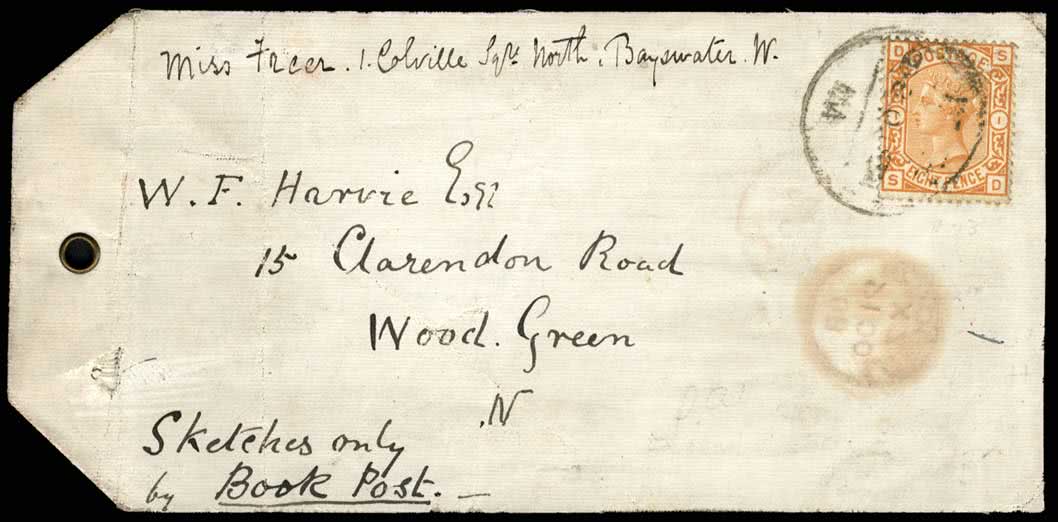 Miss Freer. 1. Colville Sqre North, Bayswater. W.
D POSTAGE S
I
S EIGHT PENCE D
W. F. Harvie Esqr
15 Clarendon Road
Wood. Green
.N
Sketches only
by Book Post. –